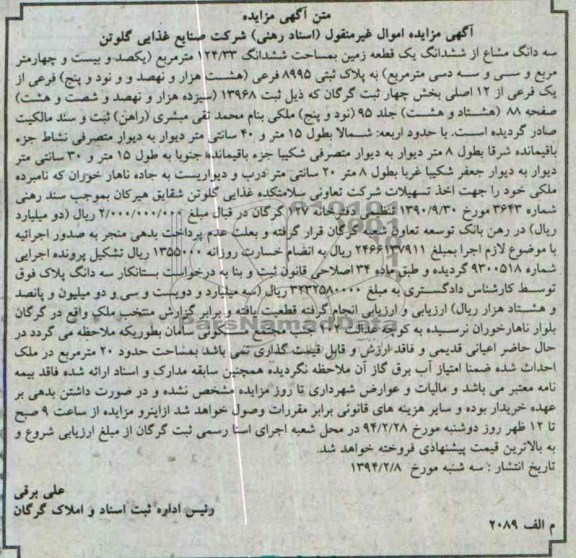 متن آگهی مزایده
آگهی مزایده اموال غیرمنقول (اسناد رهنی) شرکت صنایع غذایی گلوتن
سه دانگ مشاع از ششدانگ یک قطعه زمین بمساحت ششدانگ ۱۲۴/۳۳ مترمربع (یکصد و بیست و چهارمتر
مربع و سی و سه دسی مترمربع) به پلاک ثبتی ۸۹۹۵ فرعی (هشت هزار و نهصد و و نود و پنج) فرعی از
یک فرعی از ۱۲ اصلی بخش چهار ثبت گرگان که ذیل ثبت ۱۳۹۶۸ (سیزده هزار و نهصد و شصت و هشت)
صفحه ۸۸ (هشتاد و هشت) جلد ۹۵ (نود و پنج) ملکی بنام محمد تقی مبشری (راهن) ثبت و سند مالکیت
صادر گردیده است. با حدود اربعه: شمالا بطول ۱۵ متر و ۴۰ سانتی متر دیوار به دیوار متصرفی نشاط جزء
باقیمانده شرقا بطول ۸ متر دیوار به دیوار متصرفی شکیبا جزء باقیمانده جنوبا به طول ۱۵ متر و ۳۰ سانتی متر
دیوار به دیوار جعفر شکیبا غربا بطول ۸ متر ۲۰ سانتی متر درب و دیواریست به جاده ناهار خوران که نامبرده
ملکی خود را جهت اخذ تسهیلات شرکت تعاونی سلامتکده غذایی گلوتن شقایق هیرکان بموجب سند رهنی
شماره ۳۶۴۳ مورخ ۱۳۹۰/۹/۳۰ تنظیمی دفترخانه ۱۲۷ گرگان در قبال مبلغ ۲/۰۰۰/۰۰۰/۰۰۰ ریال (دو میلیارد
ریال) در رهن بانک توسعه تعاون شعبه گرگان قرار گرفته و بعلت عدم پرداخت بدهی منجر به صدور اجرائیه
با موضوع لازم اجرا بمبلغ ۲۴۶۶۱۳۷۹۱۱ ریال به انضام خسارت روزانه ۱۳۵۵۰۰۰ ریال تشکیل پرونده اجرایی
شماره ۹۳۰۰۵۱۸ گردیده و طبق ماده ۳۴ اصلاحی قانون ثبت و بنا به درخواست بستانکار سه دانگ پلاک فوق
توسط کارشناس دادگستری به مبلغ ۳۲۳۲۵۸۰۰۰۰ ریال (سه میلیارد و دویست و سی و دو میلیون و پانصد
و هشتاد هزار ریال) ارزیابی و ارزیابی انجام گرفته قطعیت یافته و برابر گزارش منتخب ملکی واقع در گرگان
بلوار ناهارخوران نرسیده به کوچه عدالت سامان بطوریکه ملاحظه می گردد در
حال حاضر اعیانی قدیمی و فاقد ارزش و قابل قیمت گذاری نمی باشد بمساحت حدود ۲۰ مترمربع در ملک
احداث شده ضمنا امتیاز آب برق گاز آن ملاحظه نگردیده همچنین سابقه مدارک و اسناد ارائه شده فاقد بیمه
نامه معتبر می باشد و مالیات و عوارض شهرداری تا روز مزایده مشخص نشده و در صورت داشتن بدهی بر
عهده خریدار بوده و سایر هزینه های قانونی برابر مقررات وصول خواهد شد ازاینرو مزایده از ساعت ۹ صبح
تا ۱۲ ظهر روز دوشنبه مورخ ۹۴/۲/۲۸ در محل شعبه اجرای اسنا رسمی ثبت گرگان از مبلغ ارزیابی شروع و
به بالاترین قیمت پیشنهادی فروخته خواهد شد.
تاریخ انتشار : سه شنبه مورخ ۱۳۹۴/۲/۸
علی برقی
رئیس اداره ثبت اسناد و املاک گرگان
م الف ۲۰۸۹